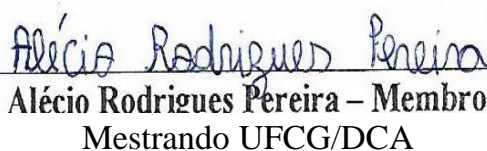 Alécio Rodrigues Pereira
Alécio Rodrigues Pereira – Membro
Mestrando UFCG/DCA